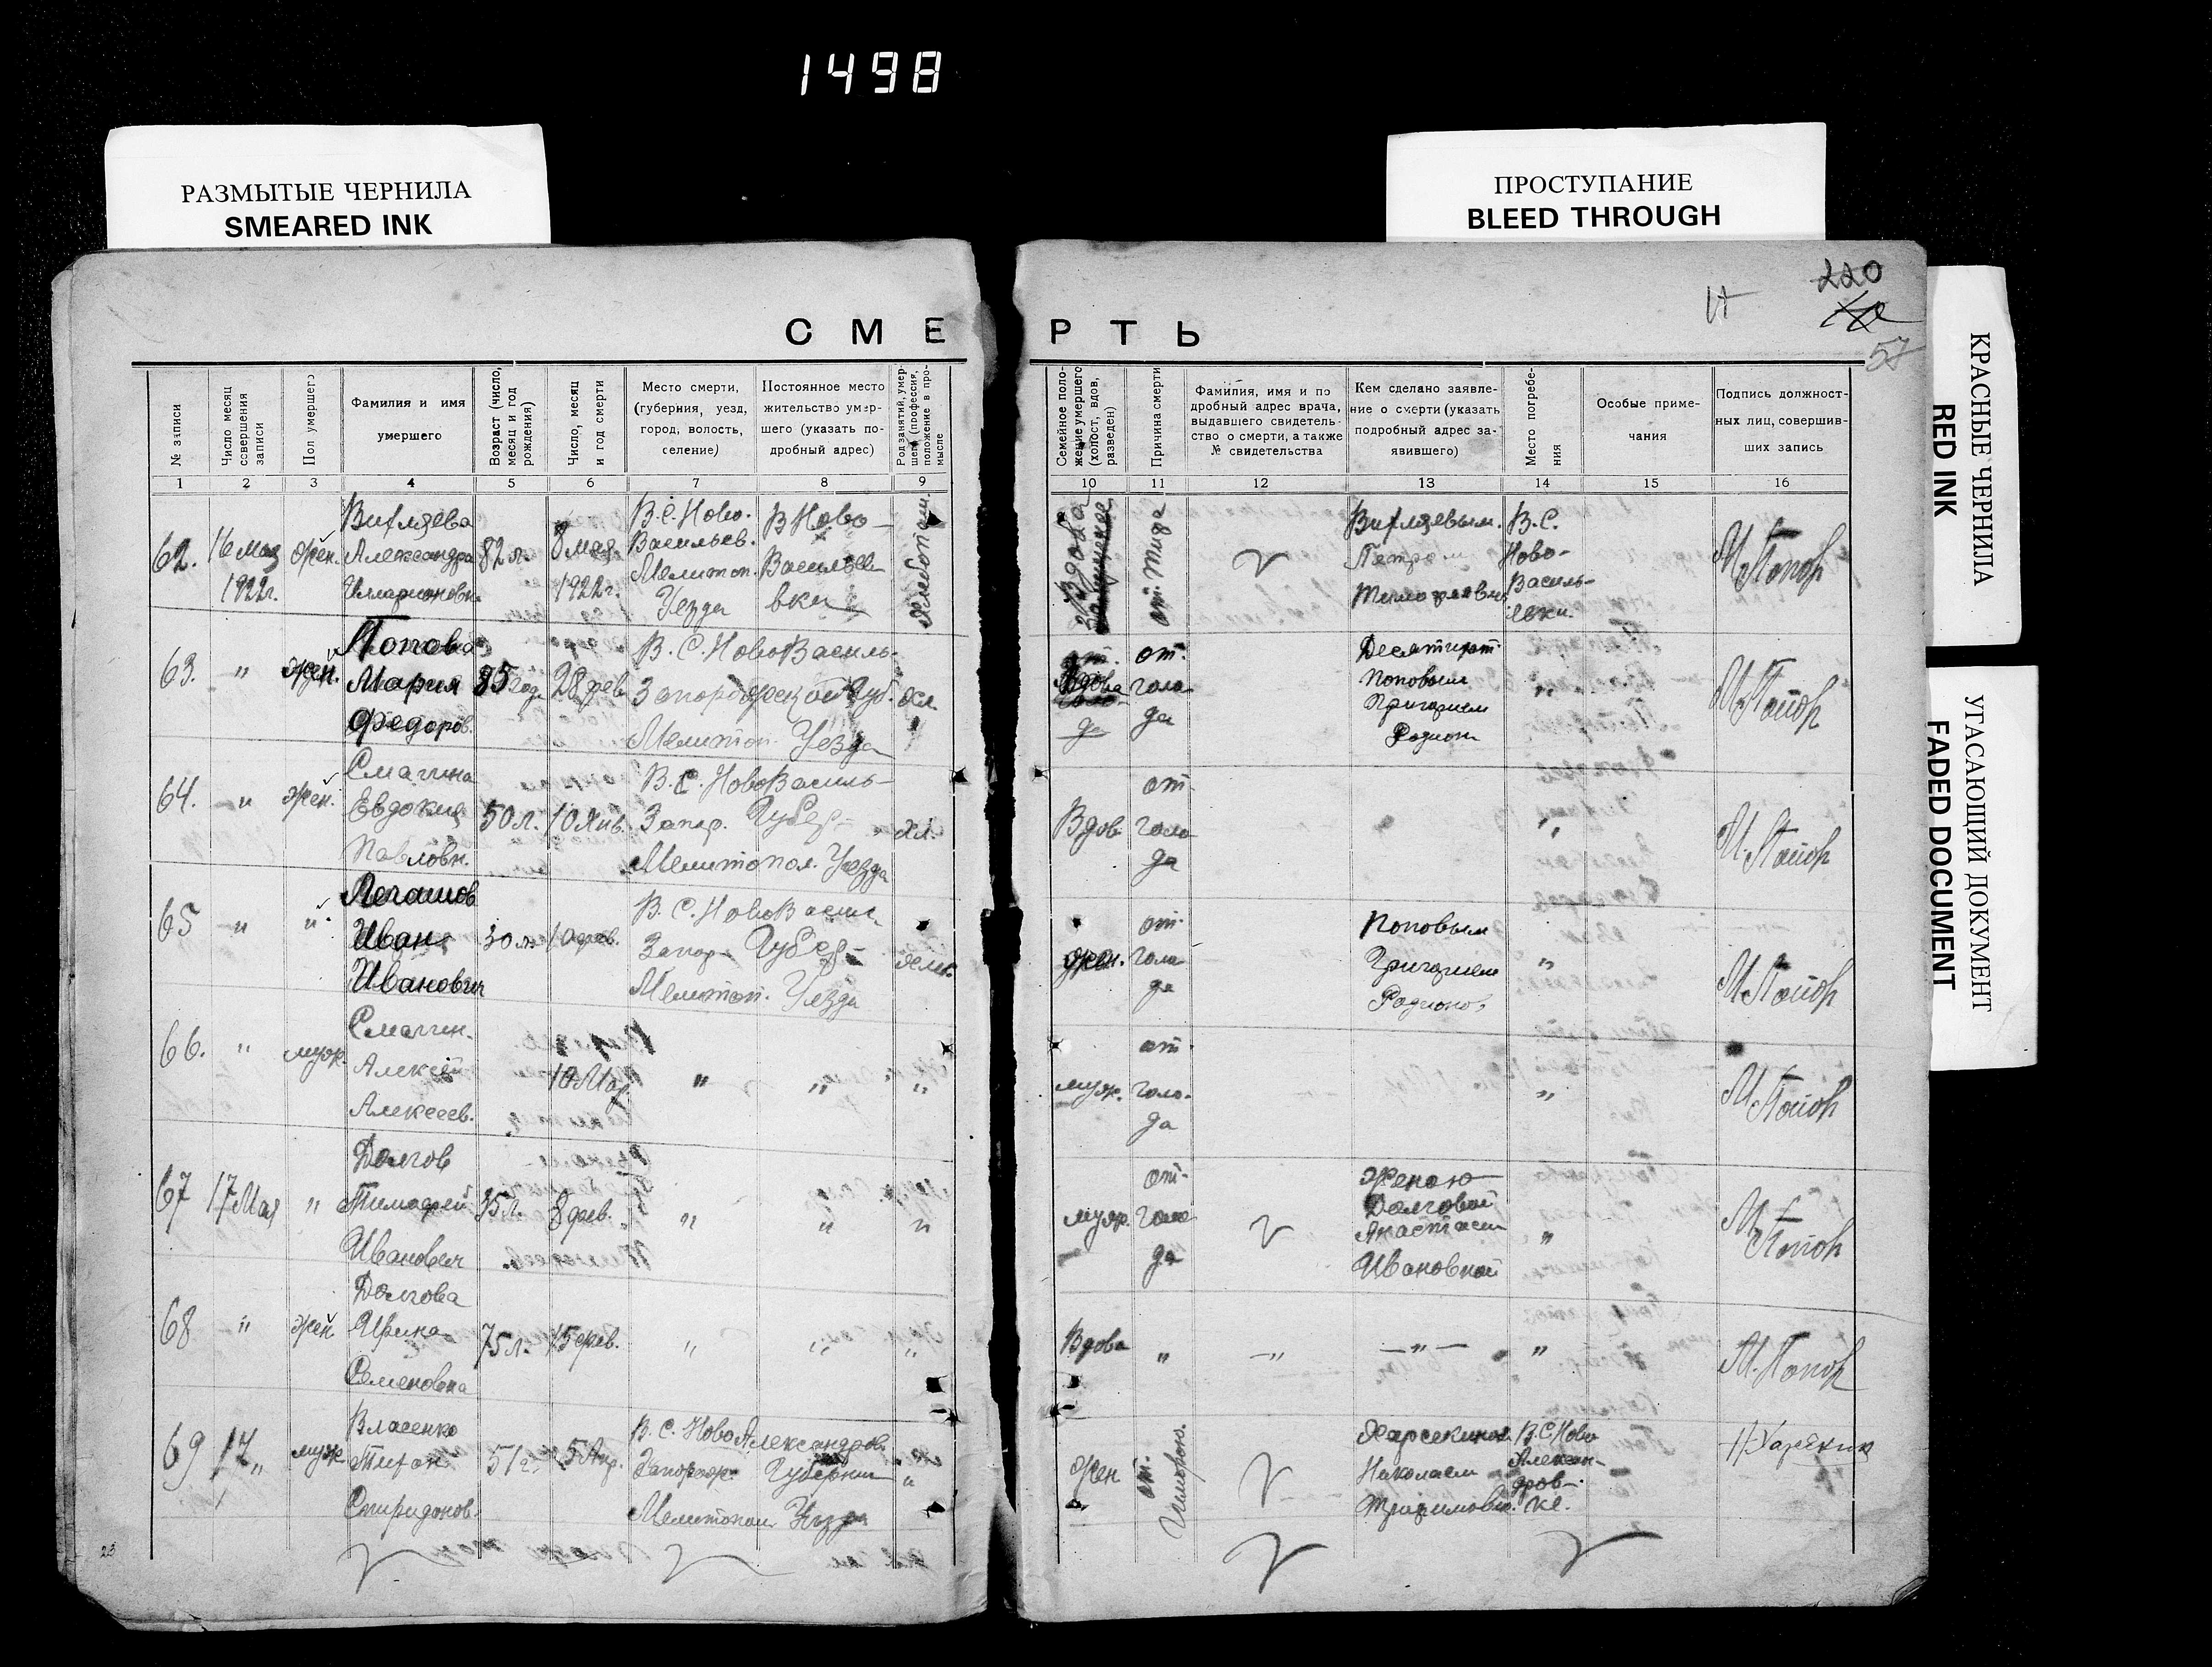 1498
РАЗМЫТЫЕ ЧЕРНИЛА
SMEARED INK
ПРОСТУПАНИЕ
BLEED THROUGH
КРАСНЫЕ ЧЕРНИЛА
RED INK
УГАСАЮЩИЙ ДОКУМЕНТ
FADED DOCUMENT
220
57
СМЕРТЬ
№ записи
Число месяц совершения записи
Пол умершего
Фамилия и имя умершего
Возраст (число, месяц и год рождения)
Число, месяц и год смерти
Место смерти, (губерния, уезд, город, волость, селение)
Постоянное место жительство умершего (указать подробный адрес)
Род занятий, умершей (профессия, положение в промысле
Семейное положение умершего (холост, вдов, разведен)
Причина смерти
Фамилия, имя и подробный адрес врача, выдавшего свидетельство о смерти, а также № свидетельства
Кем сделано заявление о смерти (указать подробный адрес заявившего)
Место погребения
Особые примечания
Подпись должностных лиц, совершивших запись
1 2 3 4 5 6 7 8 9 10 11 12 13 14 15 16
62. 16 мая 1922г. жен. Александра 82 л. 8 мая 1922г. В.С. Ново-Васильев. Мелитоп. Уезда В Ново-Васильевки Хлебопаш. Вдова от тифа Петром В.С. Ново-Васильевки. М Попов
63. " жен. Попова Мария Федоров. 85 год. 28 фев. В.С. НовоВасиль- Запорожской Губ. Мелитоп. Уезда хл. Вдова от голода Поповым Григорием Родион " М Попов
64. " жен. Смагина Евдокия Павловн. 50 л. 10 Янв. В.С. НовоВасиль- Запор. Губер- Мелитопол. Уезда хл. Вдов от голода " М. Попов
65 " " Иван Иванович 30 л. 10 фев. В.С. НовоВасил. Запор- Губер- Мелитоп. Уезда жен. от голода Поповым Григорием Родионов. " М Попов
66. " муж. Смагин. Алексей Алексеев. 10 Мар. " " " муж. от голода " М Попов
67 17 Мая " Долгов Тимофей Иванович 8 фев. " " " муж. от голода Женою Долговой Анастасией Ивановной " М Попов
68 " жен Долгова Ирина Семеновна 75 л. 15 фев. " " " Вдова " " " " М. Попов
69 17 " муж Власенко Спиридонов. 51 г. 5 Апр. В.С. НовоАлександров. Запорож. Губернии Мелитопол Уезда " жен от Николаем Трофимович. В.С Ново Александровке.
23